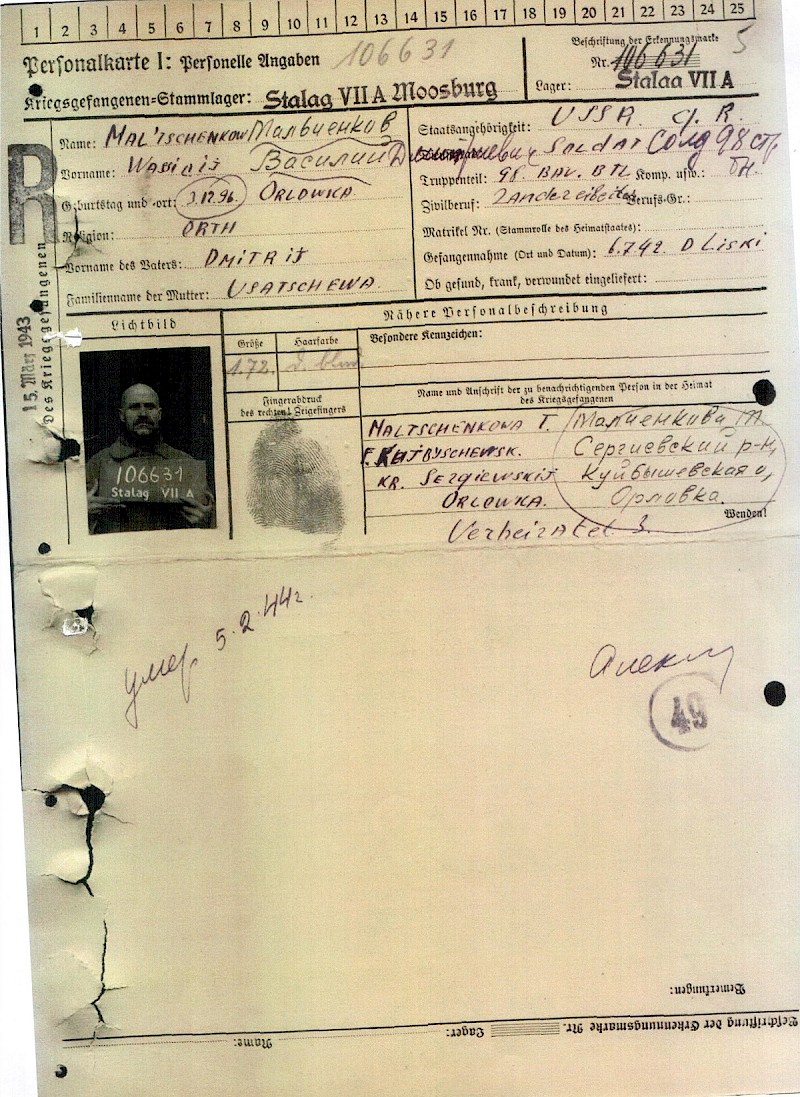 1 2 3 4 5 6 7 8 9 10 11 12 13 14 15 16 17 18 19 20 21 22 23 24 25
Personalkarte I: Personelle Angaben 106631
Beschriftung der Erkennungsmarke 5
Nr. 106 631
Kriegsgefangenen-Stammlager: Stalag VII A Moosburg
Lager: Stalag VII A
R
15. März 1943
Des Kriegsgefangenen
Name: MAL'TSCHENKOW Мальченков
Vorname: Wassilij Василий
Geburtstag und -ort: 3.12.96. ORLOWKA
Religion: ORTH
Vorname des Vaters: DMITRIJ
Familienname der Mutter: USATSCHEWA.
Staatsangehörigkeit: USSR.
SOLDAT Солд 98 стр
Truppenteil: 98. BAU. BTL Komp. usw.:
Zivilberuf: Berufs-Gr.:
Matrikel Nr. (Stammrolle des Heimatstaates):
Gefangennahme (Ort und Datum): 6.7.42. D LISKI
Ob gesund, krank, verwundet eingeliefert:
Lichtbild
Nähere Personalbeschreibung
Größe Haarfarbe Besondere Kennzeichen:
1.72.
Fingerabdruck
des rechten Zeigefingers
106631
Stalag VII A
Name und Anschrift der zu benachrichtigenden Person in der Heimat
des Kriegsgefangenen
MALTSCHENKOWA T. Малченкова Т
KUJBYSCHEWSK. Сергиевский р-н,
KR. SERGIEWSKIJ Куйбышевская о,
ORLOWKA. Орловка.
Wenden!
Verheiratet 3.
умер 5.2.44г.
49
Bemerkungen:
Beschriftung der Erkennungsmarke Nr. Lager: Name: